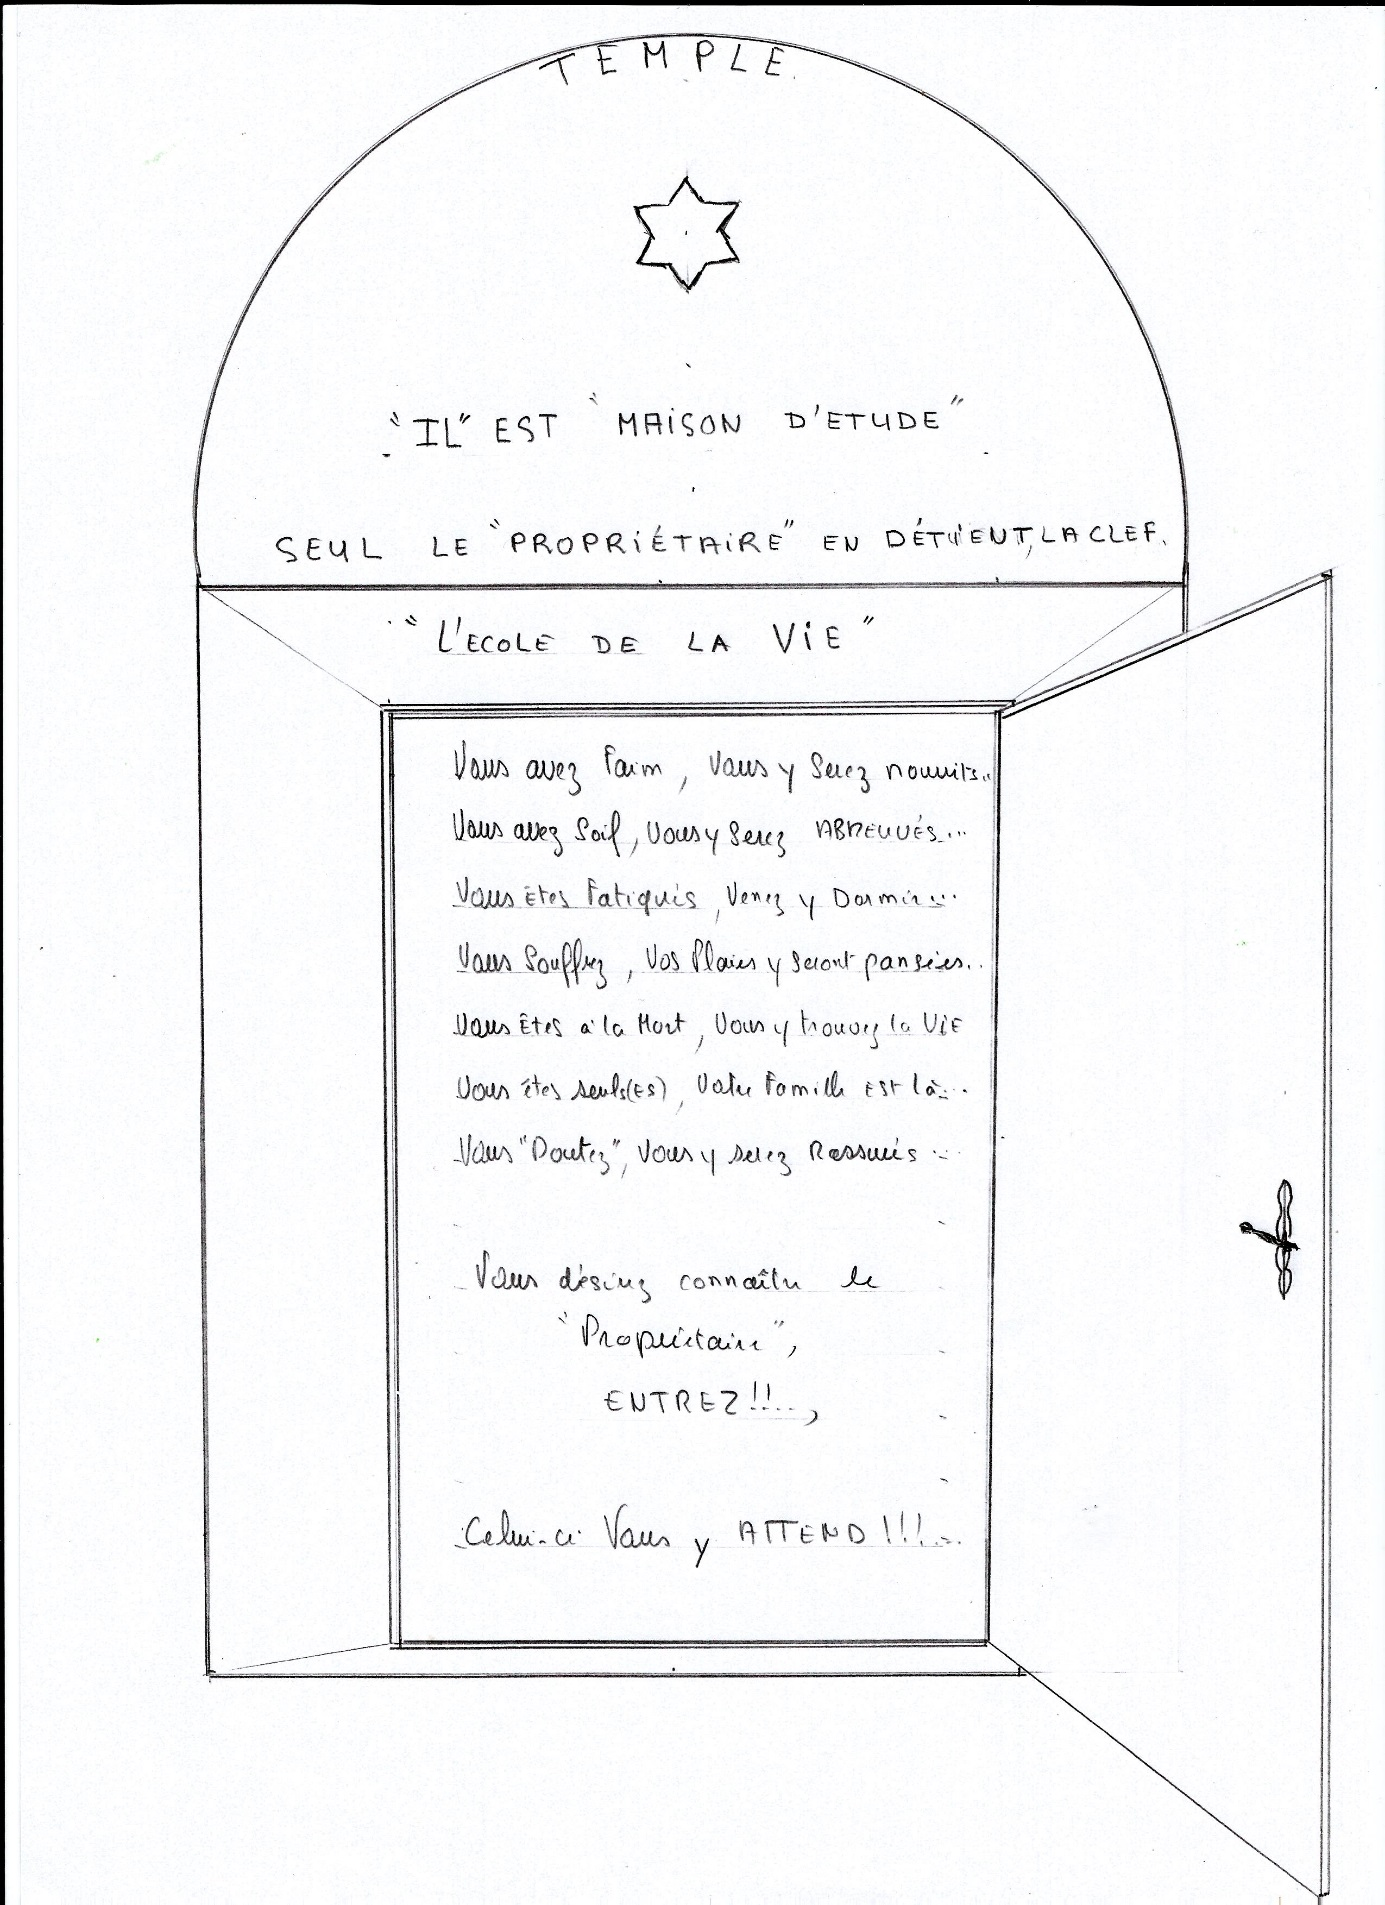 TEMPLE.
"IL" EST "MAISON D'ETUDE"
SEUL LE "PROPRIÉTAIRE" EN DÉTIENT, LA CLEF.
"L'ECOLE DE LA VIE"
Vous avez Faim, Vous y Serez nourrits..
Vous avez Soif, Vous y Serez ABREUVÉS...
Vous êtes Fatigués, Venez y Dormir...
Vous Souffrez, Vos Plaies y seront pansées..
Vous Êtes à la Mort, Vous y trouvez la VIE
Vous êtes seuls(ES), Votre Famille EST là...
Vous "Doutez", Vous y serez Rassurés...
Vous désirez connaître le
"Propriétaire",
ENTREZ!!...,
Celui-ci Vous y ATTEND!!!...